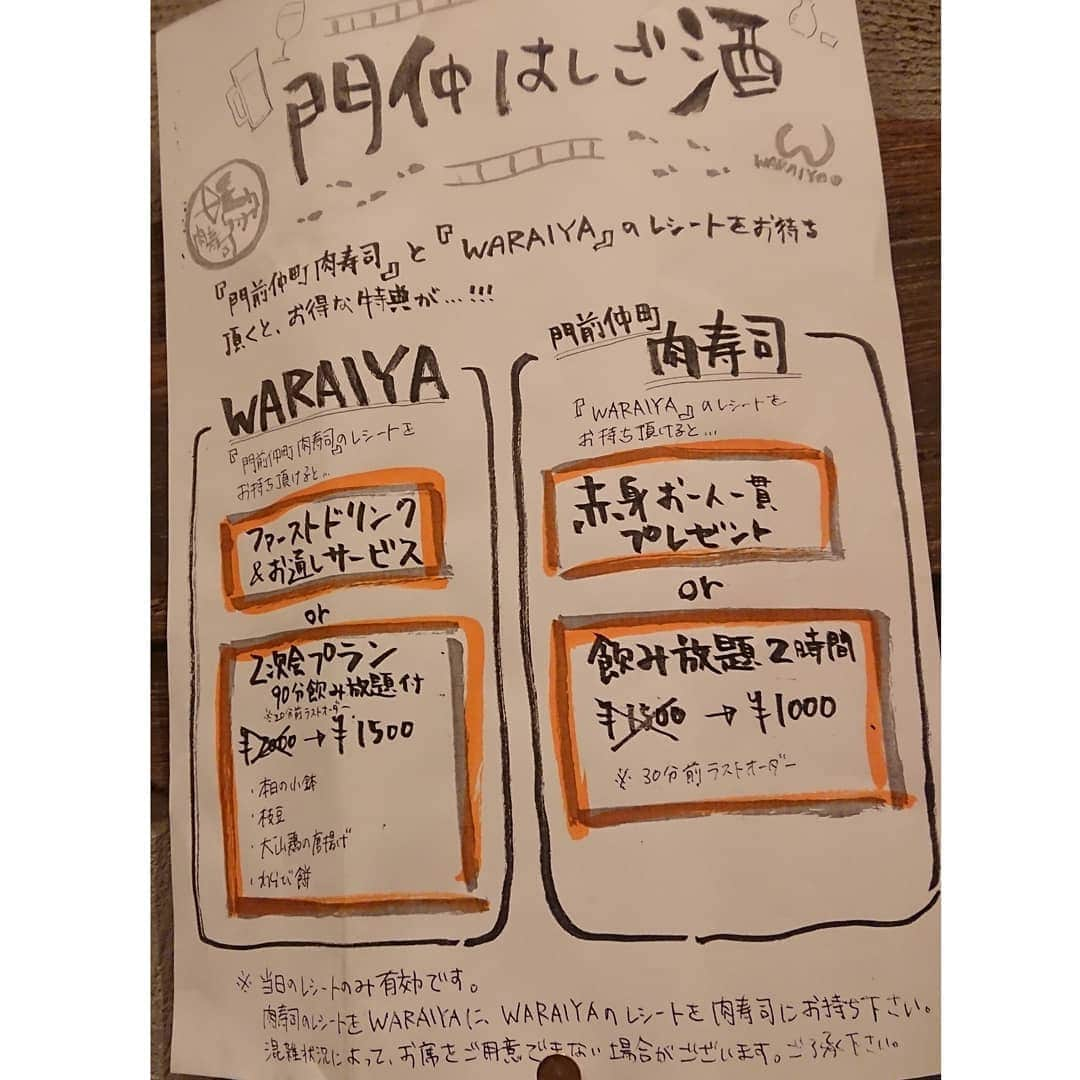 門仲はしご酒
肉寿司
WARAIYA
『門前仲町 肉寿司』と『WARAIYA』のレシートをお待ち
頂くと、お得な特典が…!!!
WARAIYA
『門前仲町 肉寿司』のレシートを
お持ち頂けると…
ファーストドリンク
&お通しサービス
or
2次会プラン
90分飲み放題付
※20分前ラストオーダー
¥2000→¥1500
・本日の小鉢
・枝豆
・大山鶏の唐揚げ
・わらび餅
門前仲町
肉寿司
『WARAIYA』のレシートを
お持ち頂けると…
赤身お一人一貫
プレゼント
or
飲み放題2時間
¥1500→¥1000
※30分前ラストオーダー
※当日のレシートのみ有効です。
肉寿司のレシートをWARAIYAに、WARAIYAのレシートを肉寿司にお持ち下さい。
混雑状況によって、お席をご用意できない場合がございます。ご了承下さい。